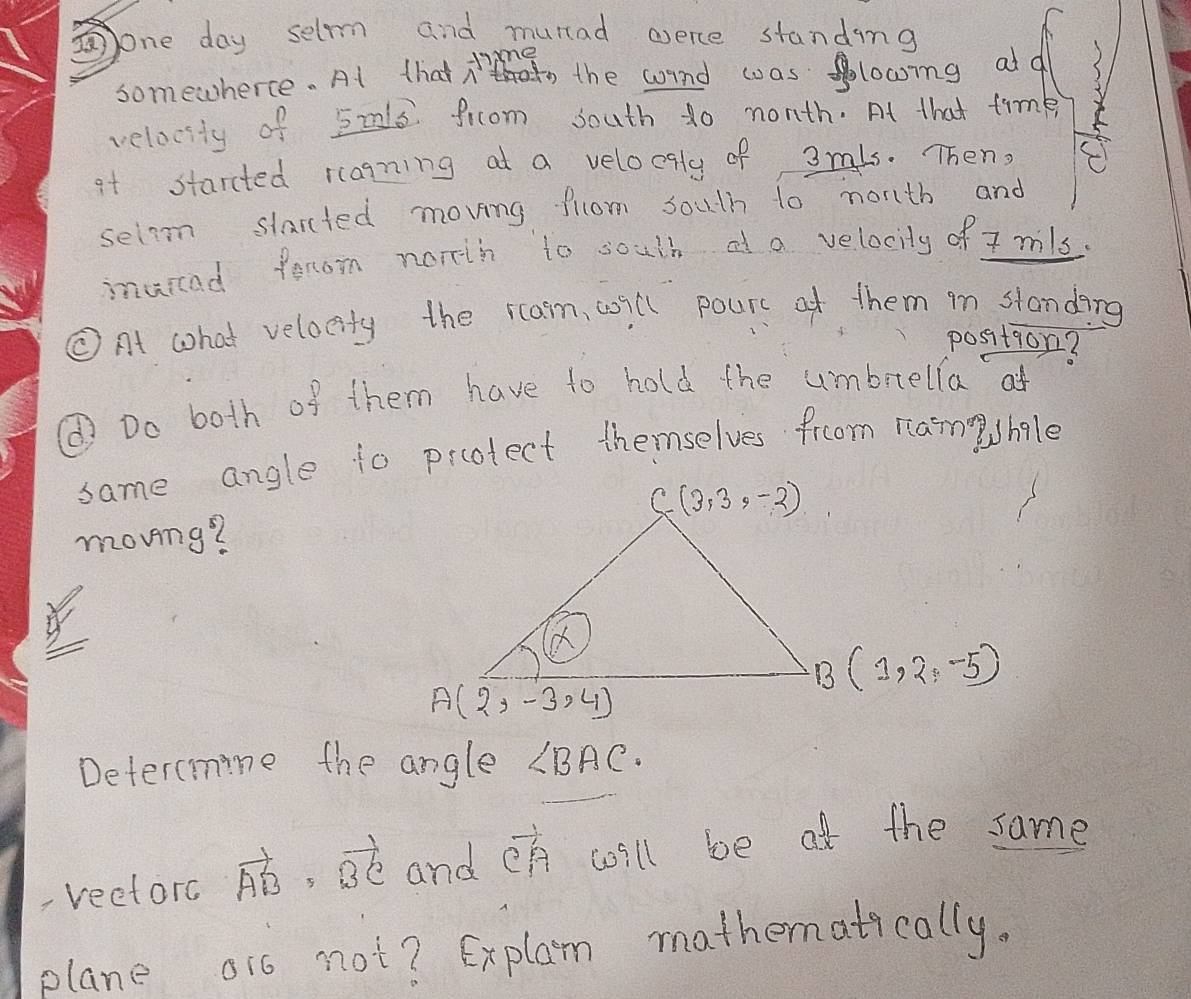 12) One day selim and murad were standing
somewhere. At that time the wind was blowing at a
velocity of 5 m/s from south to north. At that time,
it started raining at a velocity of 3 m/s. Then,
selim started moving from south to north and
murad from north to south at a velocity of 7 m/s.
ⓒ At what velocity the rain, will pour at them in standing
position?
ⓓ Do both of them have to hold the umbrella at
same angle to protect themselves from rain while
moving?
C(3,3,-2)
α
A(2,-3,4)
B(1,2,-5)
Determine the angle ∠BAC.
vector AB, BC and CA will be at the same
plane or not? Explain mathematically.